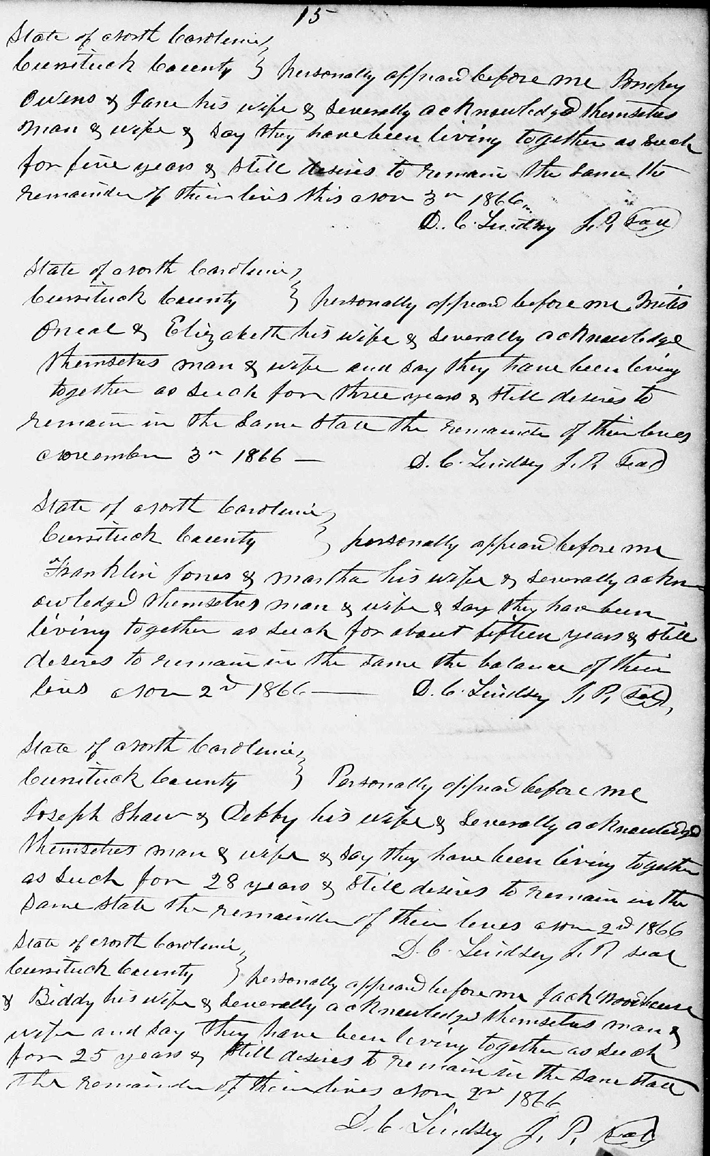 15
State of North Carolina,
Currituck County } personally appeard before me Pompey
Owens & Jane his wife & Severally acknowledged themselves
man & wife & Say they have been living together as Such
for five years & Still desires to remain the Same the
remainder of their lives this Nov 3rd 1866
D. C. Lindsey J. P. Seal
State of North Carolina,
Currituck County } personally appeard before me Miles
Oneal & Elizabeth his wife & Severally acknowledge
themselves man & wife and say they have been living
together as Such for three years & Still desires to
remain in the Same State the remainder of their lives
November 3rd 1866 — D. C. Lindsey J. P. Seal
State of North Carolina,
Currituck County } personally appeard before me
Franklin Jones & Martha his wife & Severally ackn-
owledged themselves man & wife & Say they have been
living together as Such for about fifteen years & Still
desires to remain in the Same the balance of their
lives Nov 2nd 1866 — D. C. Lindsey J. P. Seal,
State of North Carolina,
Currituck County } Personally appeard before me
Joseph Shaw & Debby his wife & Severally acknowledged
themselves man & wife & Say they have been living together
as Such for 28 years & Still desires to remain in the
Same State the remainder of their lives Nov 2nd 1866
State of North Carolina, D. C. Lindsey J. P. seal
Currituck County } personally appeard before me Jack Woodhouse
& Biddy his wife & Severally acknowledge themselves man &
wife and say they have been living together as Such
for 25 years & Still desires to remain in the Same State
the remainder of their lives Nov 2nd 1866
D. C. Lindsey J. P. Seal